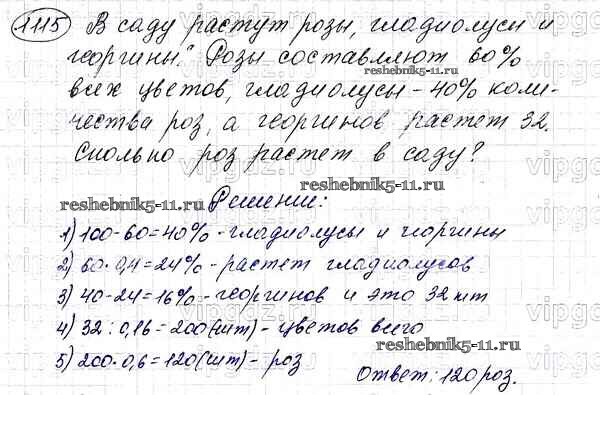 1115 В саду растут розы, гладиолусы и
георгины. Розы составляют 60%
reshebnik5-11.ru
всех цветов, гладиолусы - 40% коли-
чества роз, а георгинов растет 32.
Сколько роз растет в саду?
reshebnik5-11.ru
Решение:
reshebnik5-11.ru
1) 100-60=40% - гладиолусы и георгины
2) 60·0,4=24% - растет гладиолусов
3) 40-24=16% - георгинов и это 32 шт
4) 32:0,16=200(шт) - цветов всего
reshebnik5-11.ru
5) 200·0,6=120(шт) - роз
Ответ: 120 роз.